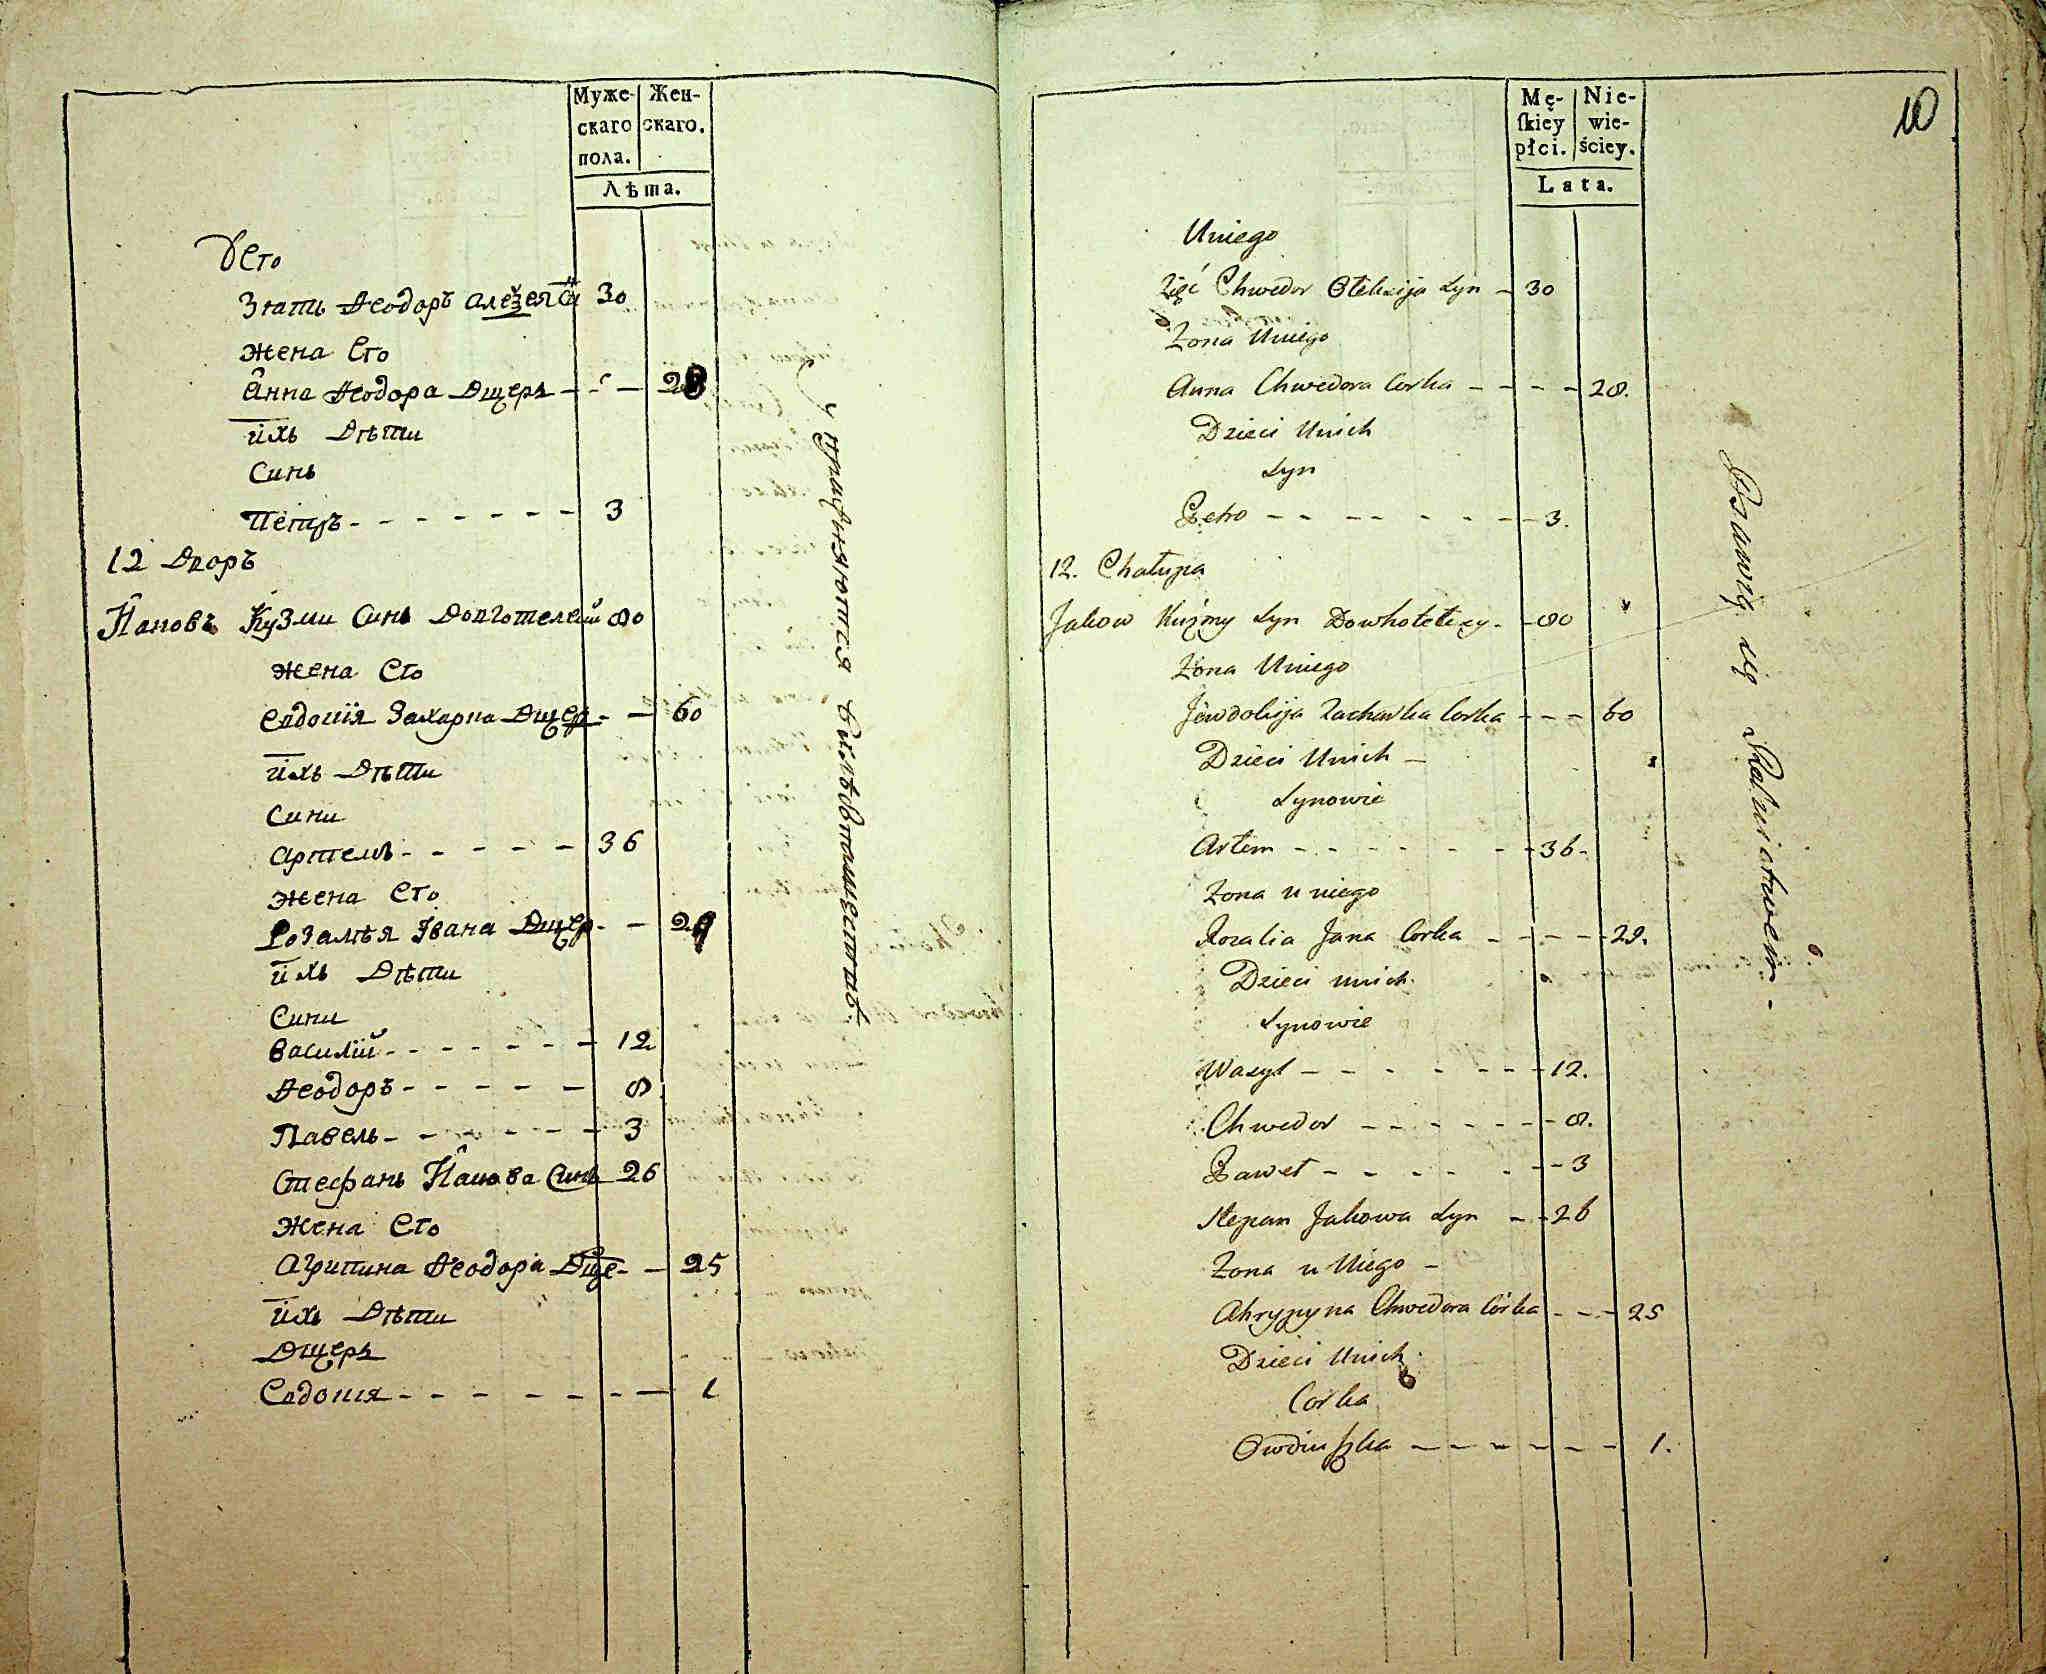 Муже- Жен-
скаго скаго.
пола.
Лѣта.
У Его
Зять Феодоръ Алеѯея Сн 30
Жена Его
Анна Феодора Дщерь - - - 28
ихъ Дѣти
Синъ
Петръ - - - - - - - 3
12 Дворъ
Яковъ Кузми Синъ Довготелей 80
Жена Его
Евдокия Захарка Дщер - - 60
ихъ Дѣти
Сини
Артемъ - - - - - 36
Жена Его
Розалѣя Ивана Дщер - - 29
ихъ Дѣти
Сини
Василий - - - - - - - 12
Феодоръ - - - - - 8
Павелъ - - - - - - - 3
Стефанъ Якова Синъ 26
Жена Его
Агрипина Феодора Дще - - 25
ихъ Дѣти
Дщерь
Евдокия - - - - - - - - 1
Упражняются вхлѣбопашествѣ.
10
Mę- Nie-
ſkiey wie-
płci. ściey.
Lata.
Uniego
Zięć Chwedor Ołeksija Syn - 30
Żona Uniego
Anna Chwedora Corka - - - - 28.
Dzieci Unich
Syn
Petro - - - - - - - - 3.
12. Chałupa
Jakow Kuźmy Syn Dowhotełey - - 80
Żona Uniego
Jewdokija Zacharka Corka - - - 60
Dzieci Unich -
Synowie
Artem - - - - - - - - 36 -
Żona u niego
Rozalia Jana Corka - - - - - 29.
Dzieci unich
Synowie
Wasyl - - - - - - - - 12.
Chwedor - - - - - - - - 8.
Paweł - - - - - - - 3
Stepan Jakowa Syn - - 26
Żona u Niego -
Ahrypyna Chwedora Córka - - - 25
Dzieci Unich
Corka
Owdiuſzka - - - - - - - 1.
Bawią się Rolnictwem -